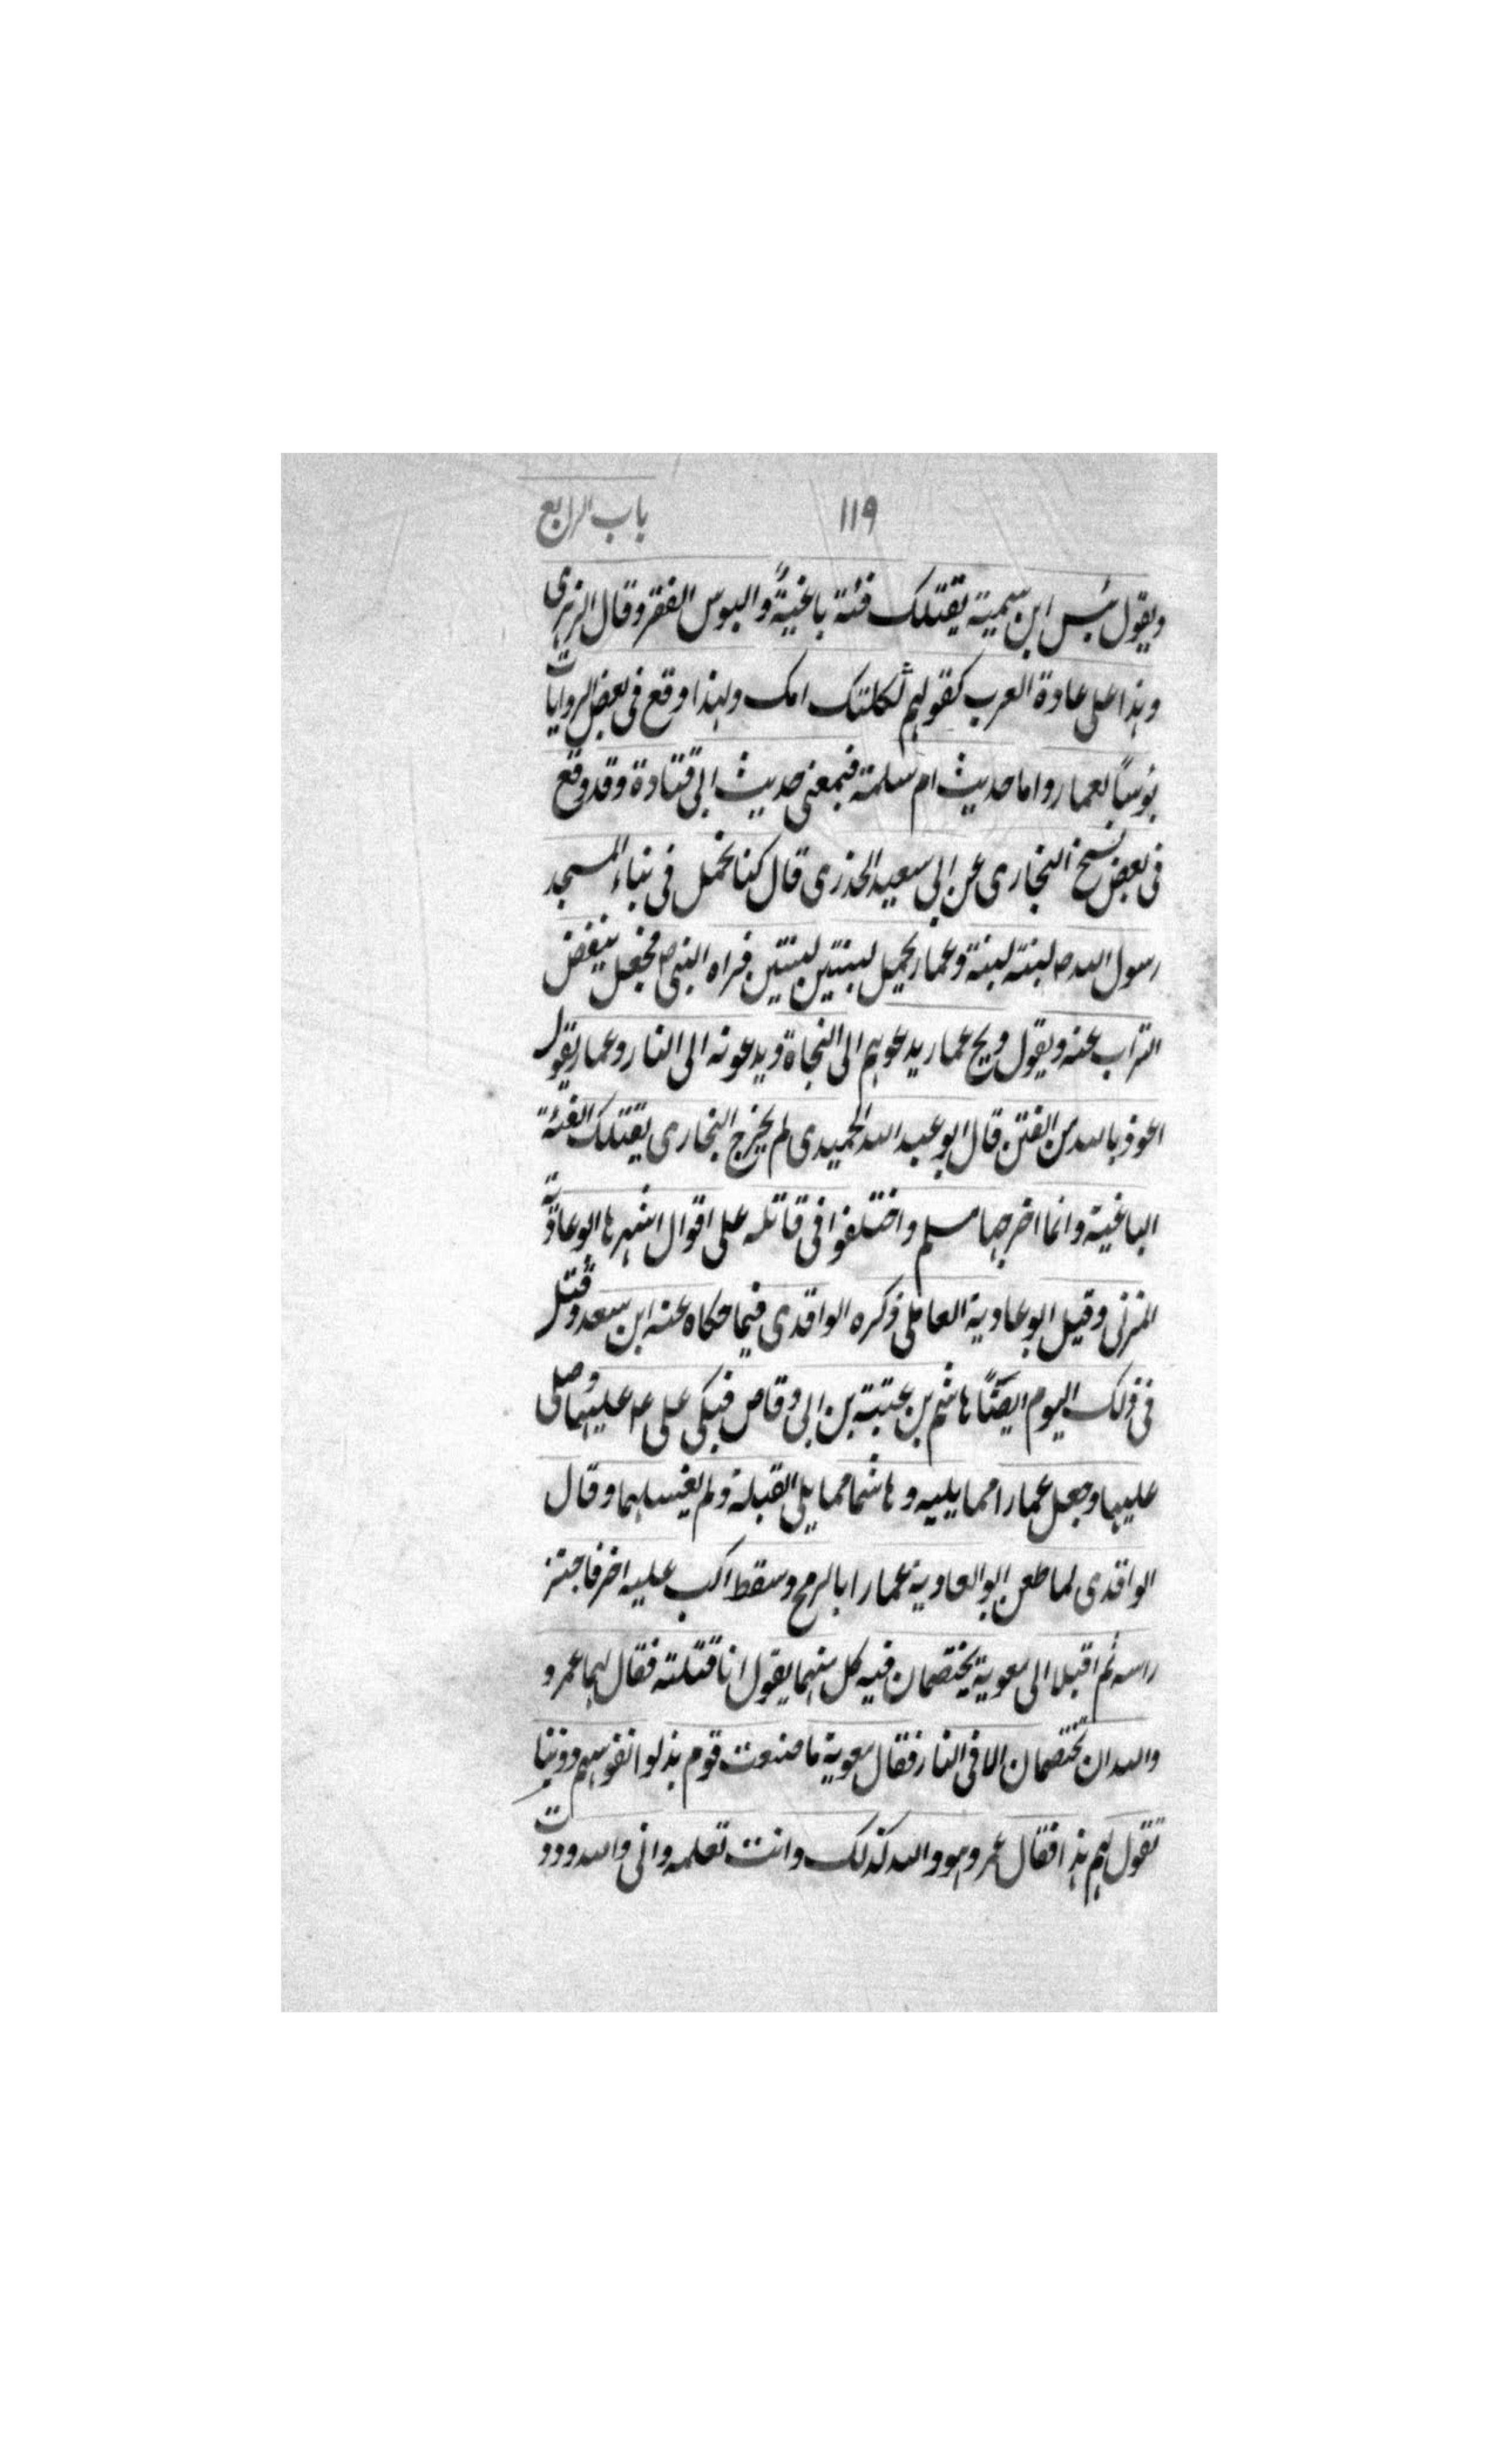 ١١٩ باب الرابع
ويقول بئس ابن سمية يقتلك فئة باغية والبوس الفقر وقال الزهرى
وهذا على عادة العرب كقولهم ثكلتك امك ولهذا وقع فى بعض الروايات
بؤسا لعمار واما حديث ام سلمة فبمعنى حديث ابى قتادة وقد وقع
فى بعض نسخ البخارى عن ابى سعيد الخدرى قال كنا نحمل فى بناء المسجد
رسول الله ص لبنة لبنة وعمار يحمل لبنتين لبنتين فراه النبى ص فجعل ينفض
التراب عنه ويقول ويح عمار يدعوهم الى النجاة ويدعونه الى النار وعمار يقول
اعوذ بالله من الفتن قال ابو عبد الله الحميدى لم يخرج البخارى يقتلك الفئة
الباغية وانما اخرجها مسلم واختلفوا فى قاتله على اقوال اشهرها ابو عادية
المزنى وقيل ابو عادية العاملى ذكره الواقدى فيما حكاه عنه ابن سعد وقتل
فى ذلك اليوم ايضًا هاشم بن عتبة بن ابى وقاص فبكى على ع عليهما وصلى
عليهما وجعل عمارا مما يليه وهاشما مما يلى القبلة ولم يغسلهما وقال
الواقدى لما طعن ابو العادية عمارا بالرمح وسقط اكب عليه اخر فاجتز
راسه ثم اقبلا الى معوية يختصمان فيه كل منهما يقول انا قتلته فقال لهما عمرو
والله ان تختصمان الا فى النار فقال معوية ما صنعت قوم بذلوا نفوسهم دوننا
تقول لهم هذا فقال عمرو هو والله كذلك وانت تعلمه وانى والله وددت